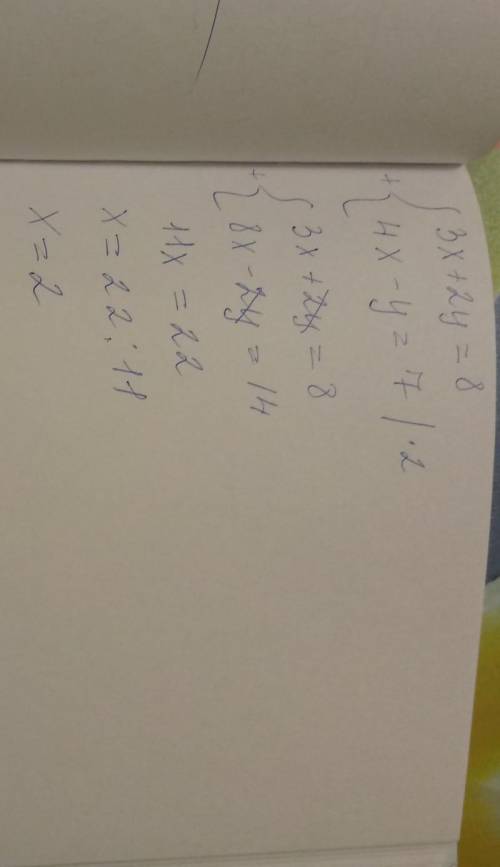 +{ 3x + 2y = 8
4x - y = 7 | · 2
+{ 3x + 2y = 8
8x - 2y = 14
11x = 22
x = 22 : 11
x = 2